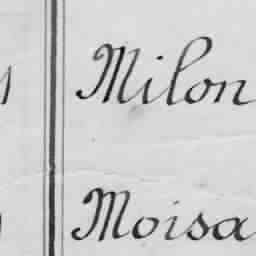 Milon
Moisa